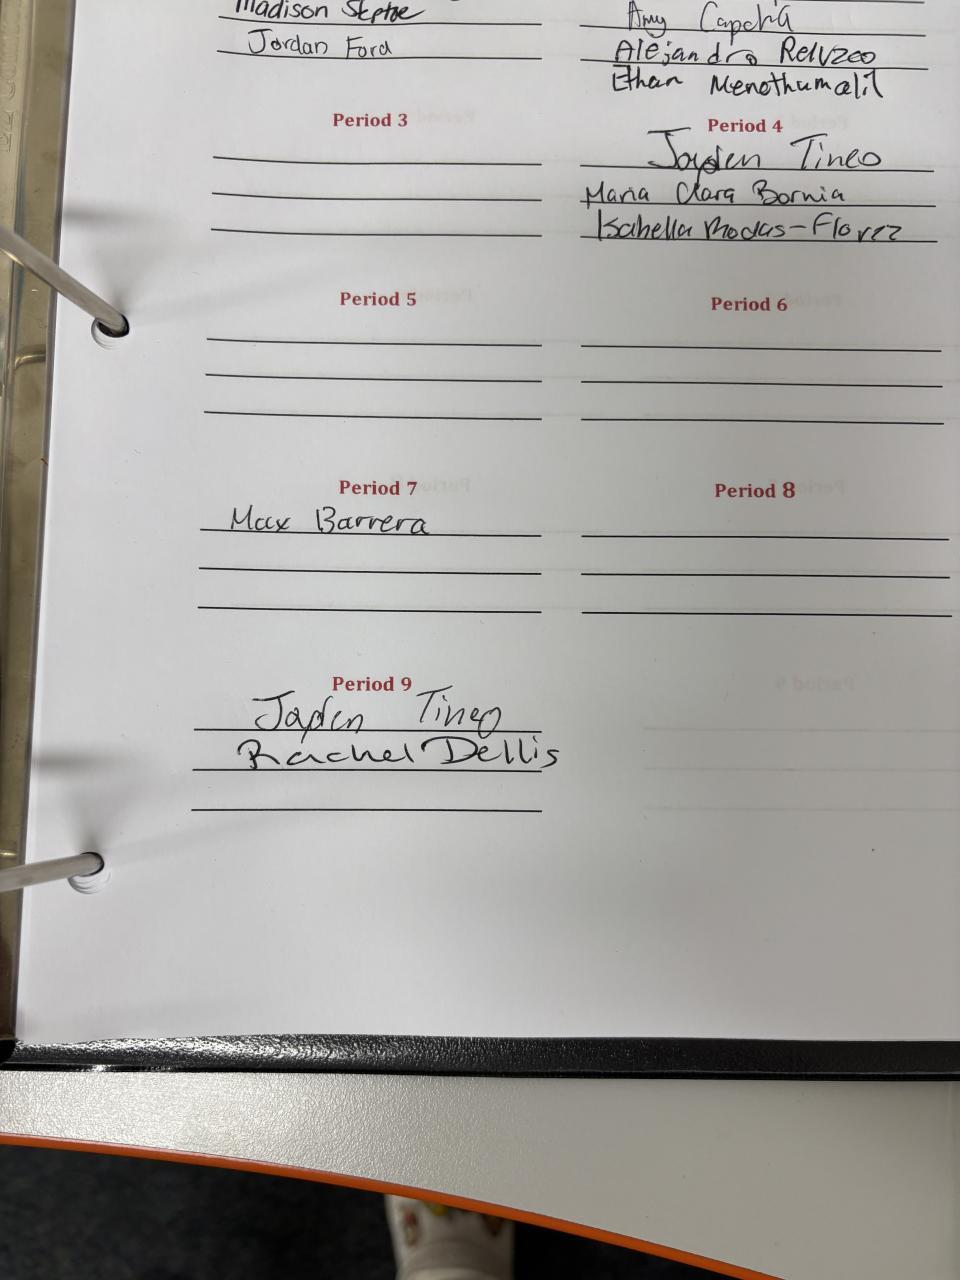 Madison Skptoe
Jordan Ford
Amy Capcha
Alejandro Reluzco
Ethan Menothumalil
Period 3
Period 4
Jayden Tineo
Maria Clara Bornia
Isabella Rhodas-Florez
Period 5
Period 6
Period 7
Max Barrera
Period 8
Period 9
Jayden Tineo
Rachel Dellis